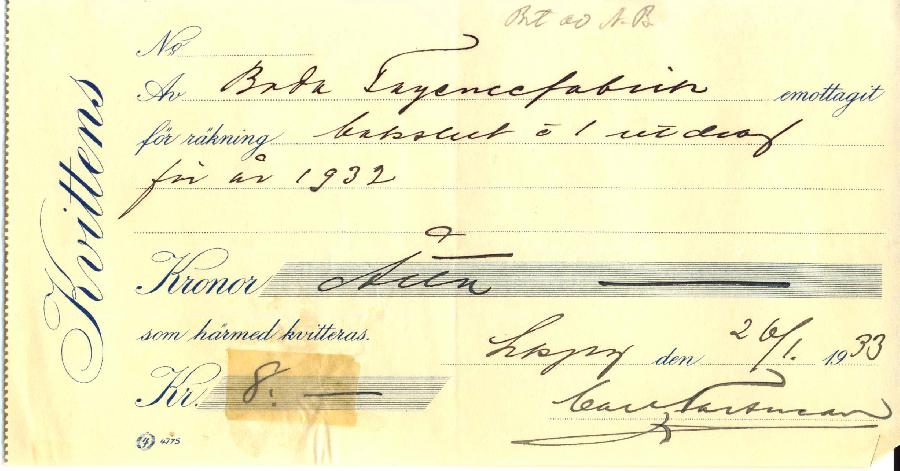 Kvittens
Bet av A-B
No
Av Boda Fayencefabrik emottagit
för räkning bokslut o 1 utdrag
för år 1932
Kronor Åtta
som härmed kvitteras.
den 26/1. 1933
Kr. 8:—
Carl
4 4775